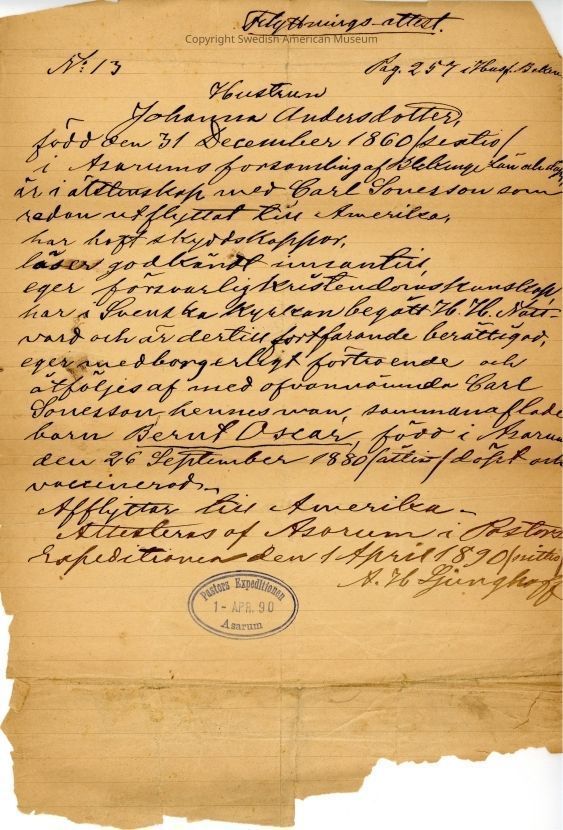 Flyttnings-attest.
Copyright Swedish American Museum
No: 13 Pag. 257 i Husf. Boken
Hustrun
Johanna Andersdotter,
född den 31 December 1860 /sextio/
i Asarums församling af Blekinge Län och
är i äktenskap med Carl Sonesson som
redan utflyttat till Amerika,
har haft skyddskoppor,
läser godkändt innantill,
eger försvarlig kristendomskunskap,
har i Svenska Kyrkan begått H. H. Natt-
vard och är dertill fortfarande berättigad,
eger medborgerligt förtroende och
åtföljes af med ofvannämnda Carl
Sonesson, hennes man, sammanaflade
barn Bernt Oscar, född i Asarum
den 26 September 1880 /åttio/ döpt och
vaccinerad.
Afflyttar till Amerika.
Attesteras af Asarum i Pastors
Expeditionen den 1 April 1890 /nittio/
A. H. Ljunghoff
Pastors Expeditionen
1 - APR. 90
Asarum